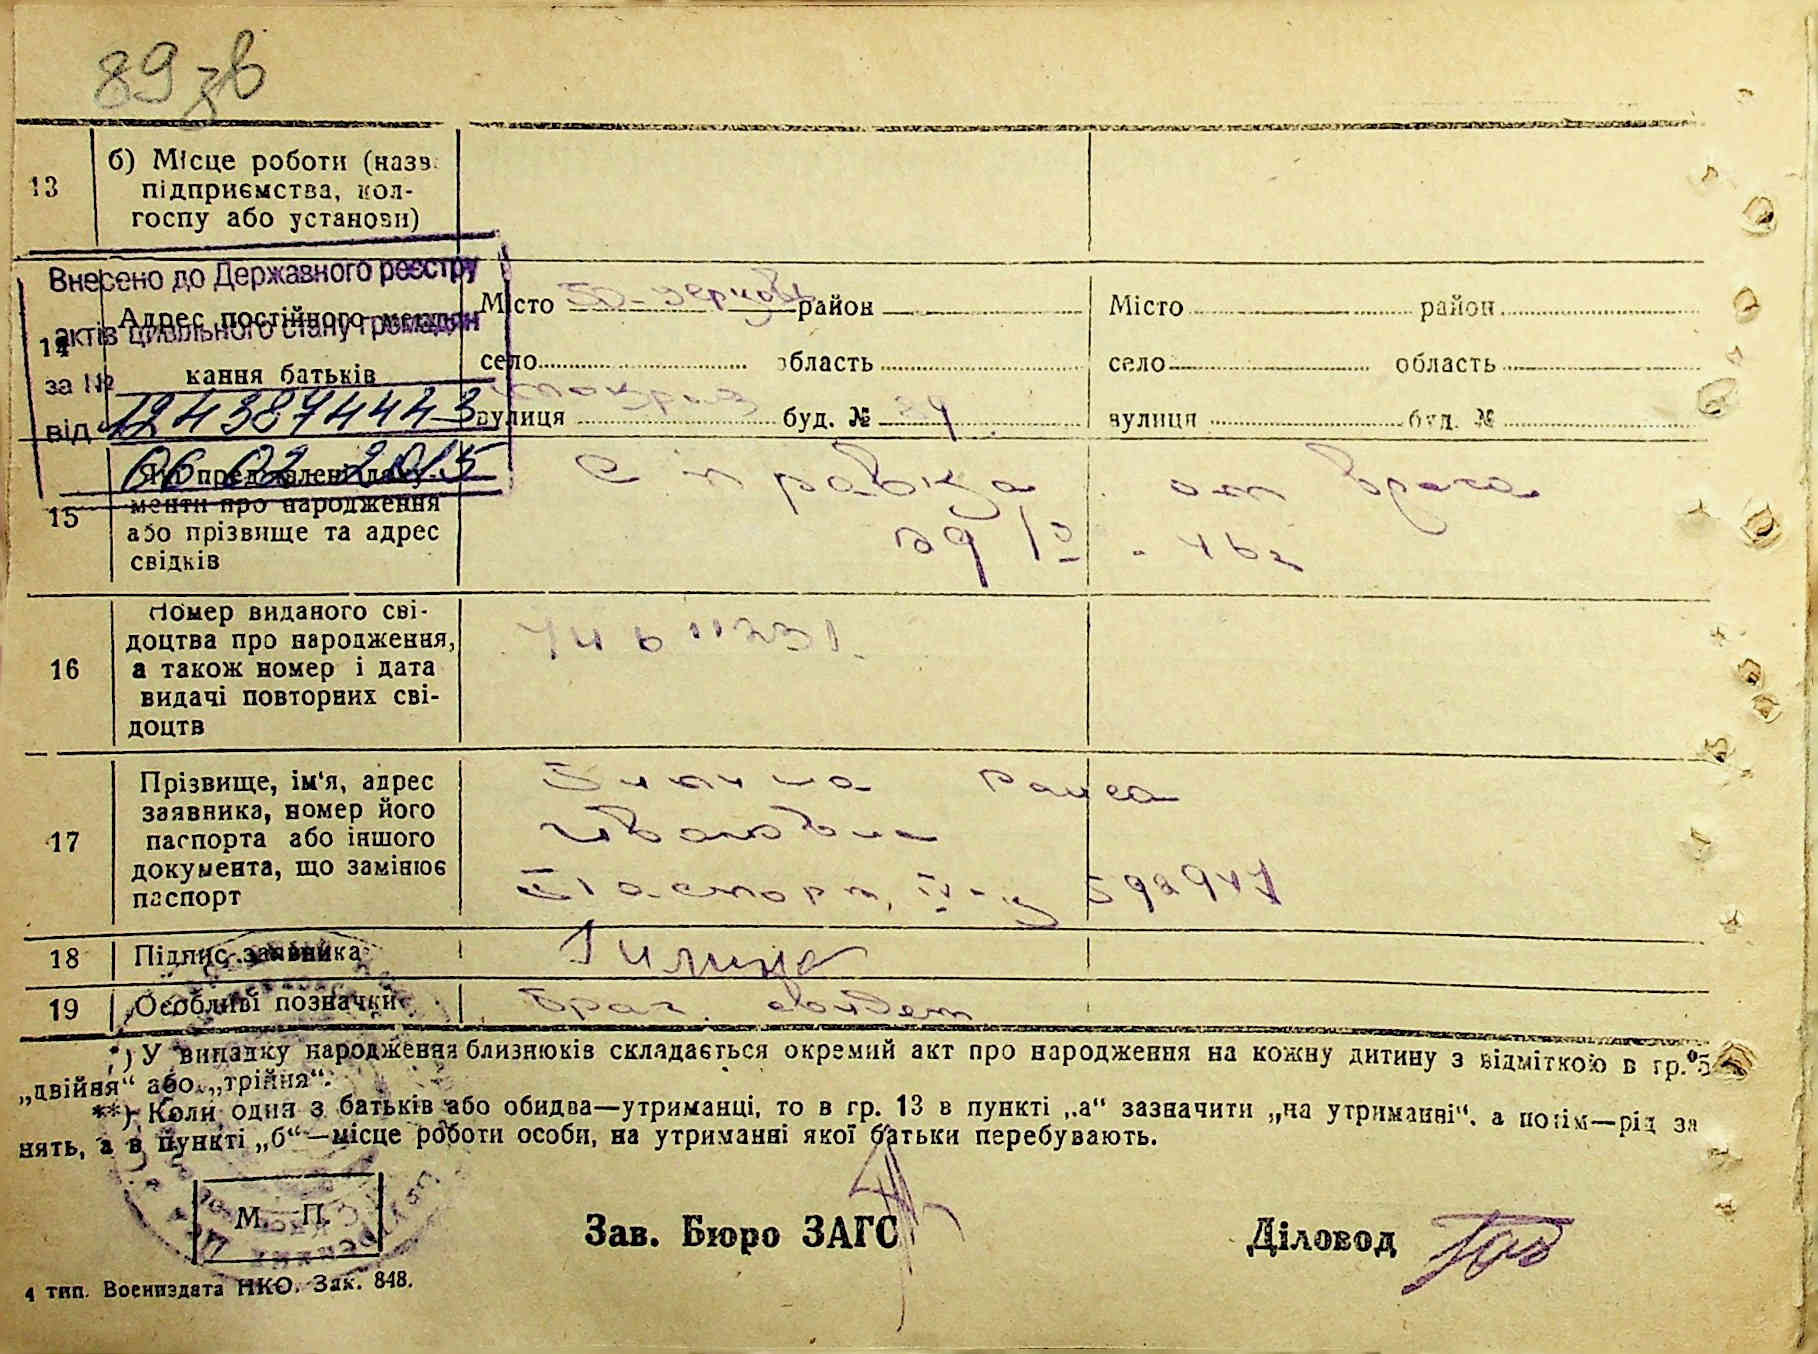 89 зв
13
б) Місце роботи (назв.
підприємства, кол-
госпу або установи)
Внесено до Державного реєстру
актів цивільного стану громадян
за №
1243874443
від
06 02 2015
14
Адрес постійного мешкання
кання батьків
Місто Б-церков район
село область
вулиця буд. № 34
Місто район
село область
вулиця буд. №
15
Які пред'явлені доку-
менти про народження
або прізвище та адрес
свідків
Справка от врача
16
Номер виданого сві-
доцтва про народження,
а також номер і дата
видачі повторних сві-
доцтв
17
Прізвище, ім'я, адрес
заявника, номер його
паспорта або іншого
документа, що замінює
паспорт
Раиса
Ивановна
Паспорт, 592947
18
Підпис заявника
19
Особливі позначки
Брач. свидет
*) У випадку народження близнюків складається окремий акт про народження на кожну дитину з відміткою в гр. 5
„двійня“ або „трійня“.
**) Коли одна з батьків або обидва—утриманці, то в гр. 13 в пункті „а“ зазначити „на утриманні“, а потім—рід за
нять, а в пункті „б“—місце роботи особи, на утриманні якої батьки перебувають.
М. П.
Зав. Бюро ЗАГС
Діловод
4 тип. Воениздата НКО. Зак. 848.